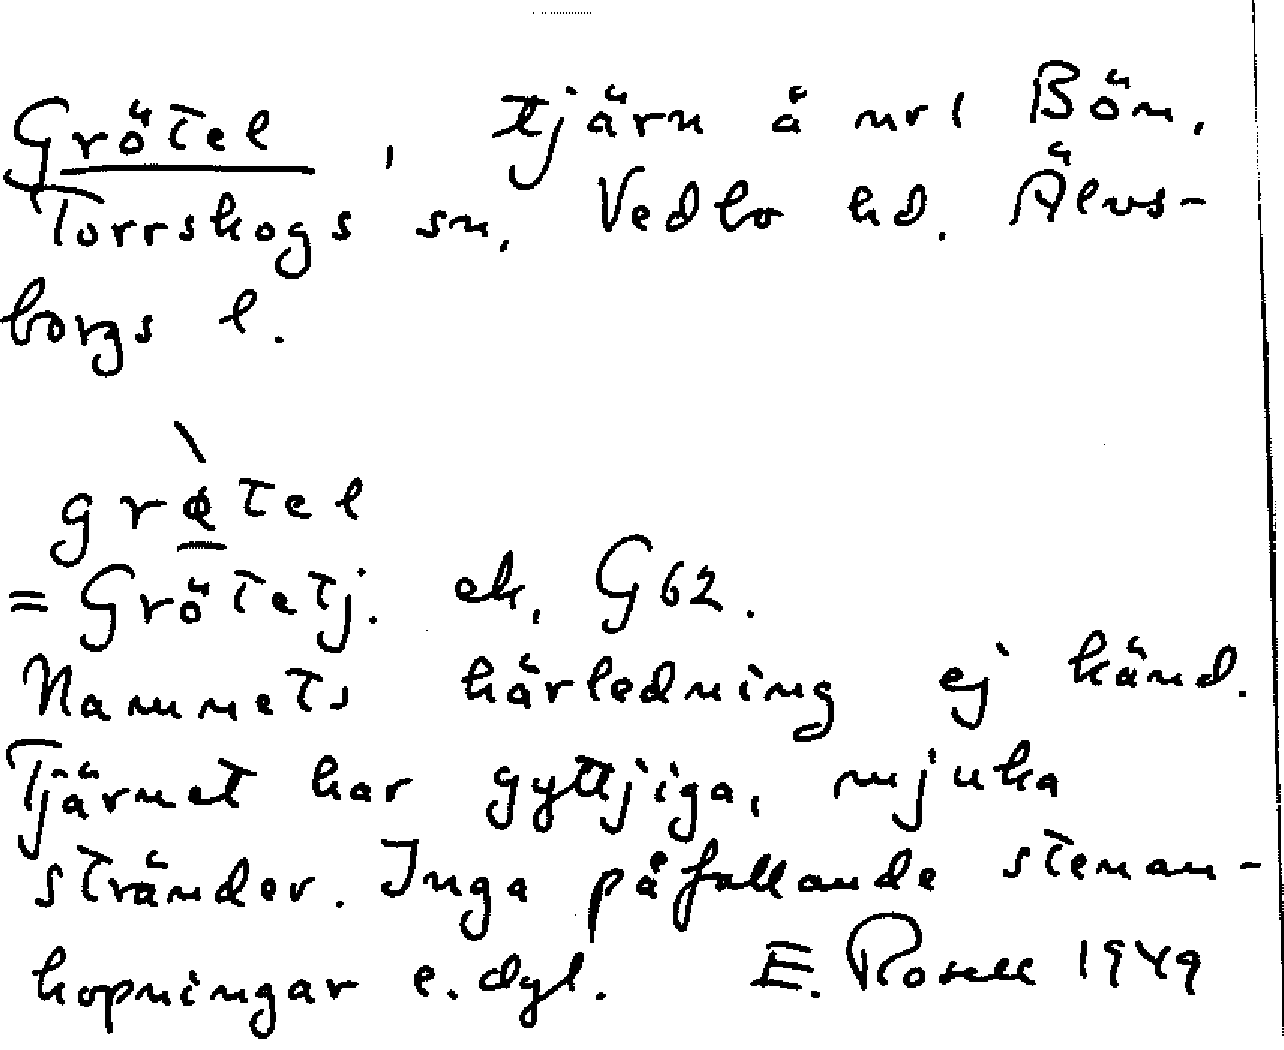 Grötel, tjärn å nr 1 Bön,
Torrskogs sn, Vedbo hd. Älvs-
borgs l.
grø̀tel
= Grötetj. ek. G62.
Namnets härledning ej känd.
Tjärnet har gyttjiga, mjuka
stränder. Inga påfallande stenan-
hopningar e. dyl. E. Rosell 1949